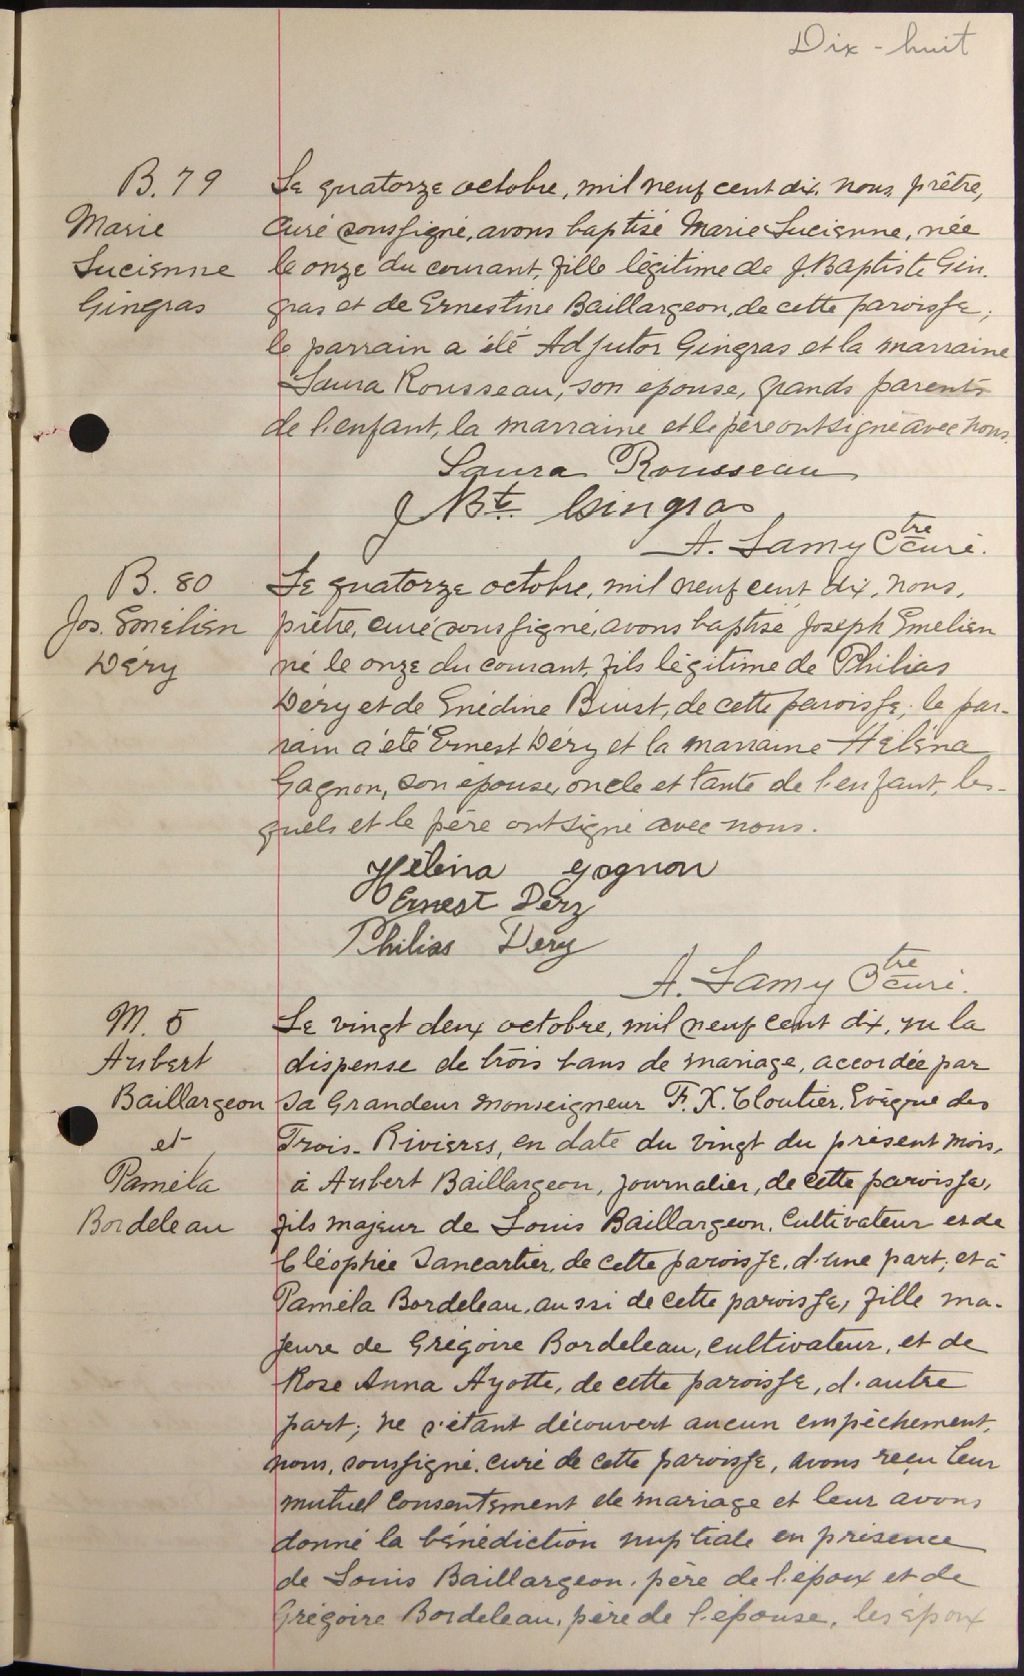 Dix-huit
B. 79
Marie
Lucienne
Gingras
Le quatorze octobre, mil neuf cent dix, nous, prêtre,
curé soussigné, avons baptisé Marie Lucienne, née
le onze du courant, fille légitime de J. Baptiste Gin-
gras et de Ernestine Baillargeon, de cette paroisse;
le parrain a été Adjutor Gingras et la marraine
Laura Rousseau, son épouse, grands parents
de l'enfant, la marraine et le père ont signé avec nous.
Laura Rousseau
J Bte Gingras
A. Lamy Ptre curé.
B. 80
Jos. Emélien
Déry
Le quatorze octobre, mil neuf cent dix, nous,
prêtre, curé soussigné, avons baptisé Joseph Emelien
né le onze du courant, fils légitime de Philias
Déry et de Enédine Buist, de cette paroisse; le par-
rain a été Ernest Déry et la marraine Héléna
Gagnon, son épouse, oncle et tante de l'enfant, les-
quels et le père ont signé avec nous.
Hélèna Gagnon
Ernest Déry
Philias Dery
A. Lamy Ptre curé.
M. 5
Aubert
Baillargeon
et
Paméla
Bordeleau
Le vingt deux octobre, mil neuf cent dix, vu la
dispense de trois bans de mariage, accordée par
Sa Grandeur Monseigneur F. X. Cloutier, Evêque des
Trois-Rivières, en date du vingt du présent mois,
à Aubert Baillargeon, journalier, de cette paroisse,
fils majeur de Louis Baillargeon, Cultivateur et de
Cléophée Sancartier, de cette paroisse, d'une part; et à
Paméla Bordeleau, aussi de cette paroisse, fille ma-
jeure de Grégoire Bordeleau, cultivateur, et de
Rose Anna Ayotte, de cette paroisse, d'autre
part; ne s'étant découvert aucun empêchement,
nous, soussigné, curé de cette paroisse, avons reçu leur
mutuel consentement de mariage et leur avons
donné la bénédiction nuptiale en présence
de Louis Baillargeon, père de l'époux et de
Grégoire Bordeleau, père de l'épouse, les époux